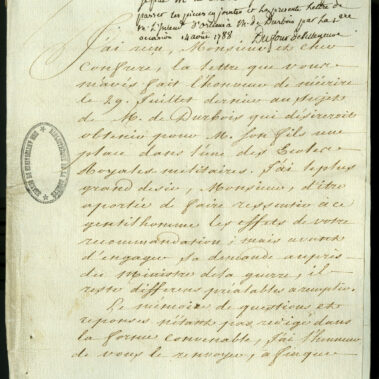 passer les pièces cy jointes et la présente lettre de
M. L'Intend. d'orléans M. de Durbois par la
occasion 14 août 1788
J'ai reçu, Monsieur et cher
Confrere, la lettre que vous
m'avés fait l'honneur de m'écrire
le 29. Juillet dernier au sujet
de M. de Durbois qui désireroit
obtenir pour M. son fils une
place dans l'une des Ecoles
Royales militaires. J'ai le plus
grand desir, Monsieur, d'être
aportée de faire ressentir à ce
gentilhomme les effets de votre
recommandation; mais avant
d'engager sa demande auprès
du Ministre de la guerre, il
reste différens préalables a remplir.
Le mémoire de questions et
reponses n'étant pas redigé dans
la forme convenable, j'ai l'honneur
de vous le renvoyer, afin que